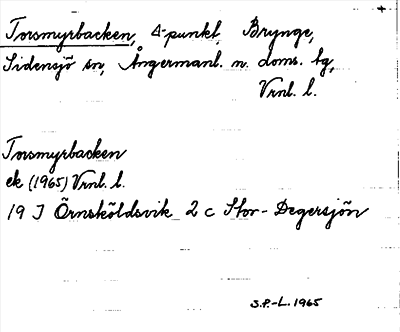 Torsmyrbacken, △-punkt, Brynge,
Sidensjö sn, Ångermanl. n. doms. tg,
Vrnl. l.
Torsmyrbacken
ek (1965) Vrnl. l.
19 J Örnsköldsvik 2 c Stor-Degersjön
S.P.-L. 1965